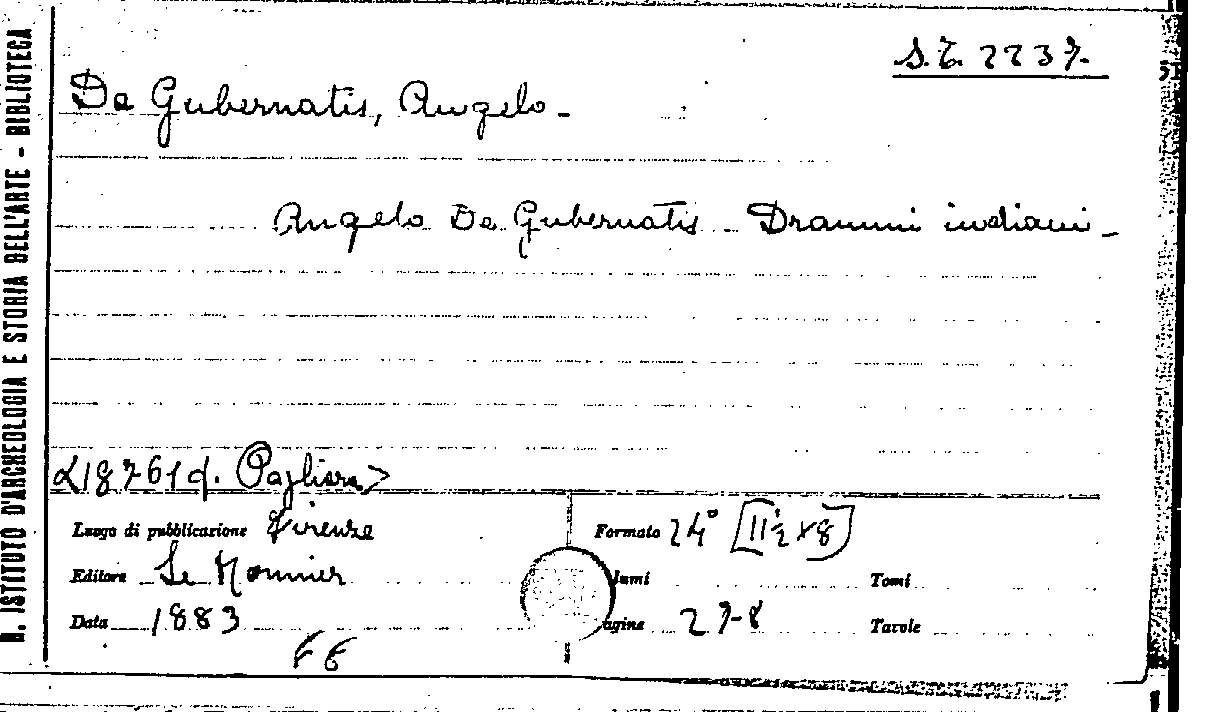 R. ISTITUTO D'ARCHEOLOGIA E STORIA DELL'ARTE - BIBLIOTECA
S.T. 2237.
De Gubernatis, Angelo -
Angelo De Gubernatis - Drammi indiani -
<18761 d. Pagliara>
Luogo di pubblicazione Firenze
Editore Le Monnier
Data 1883
Formato 24° [11½ x 8]
lumi
Tomi
agine 278
Tavole